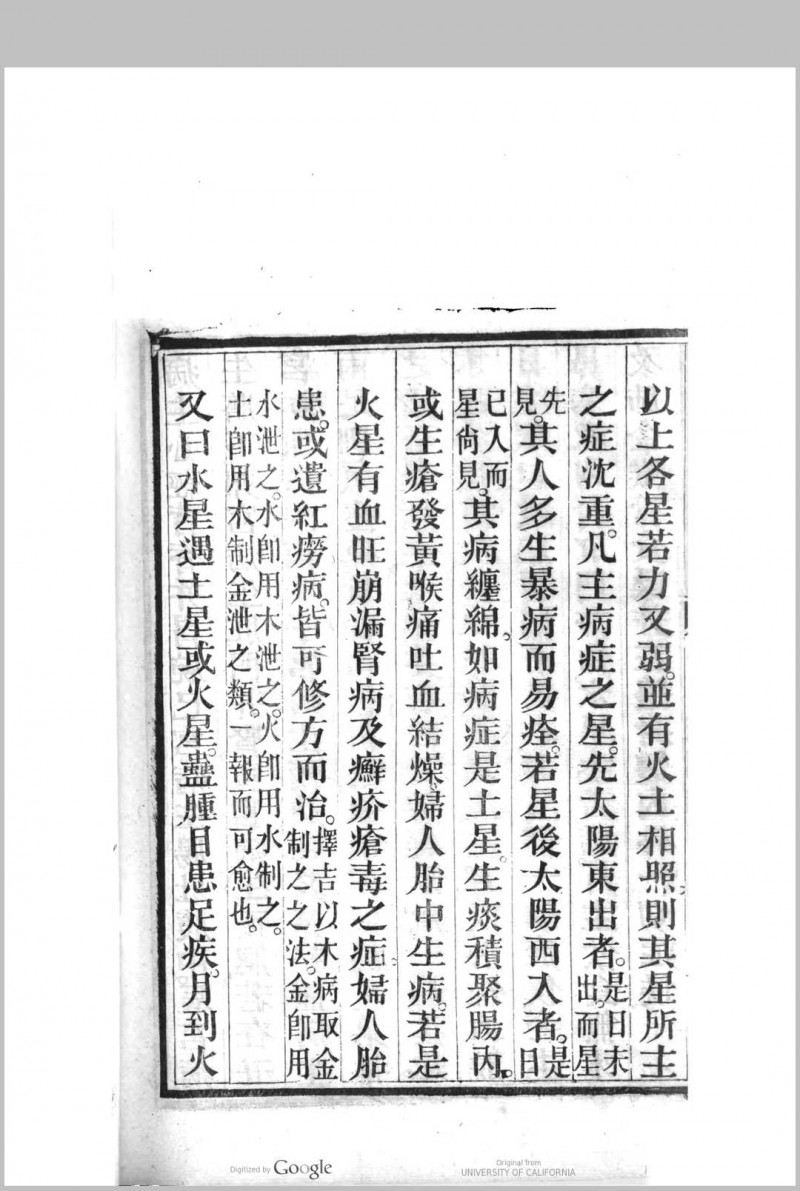 以上各星若力又弱。並有火土相照。則其星所主
之症沈重。凡主病症之星。先太陽東出者。是日未出。而星
先見。其人多生暴病而易痊。若星後太陽西入者。是日
已入而星尙見。其病纏綿。如病症是土星。生痰積聚腸內。
或生瘡發黃喉痛吐血結燥。婦人胎中生病。若是
火星有血旺崩漏腎病及癬疥瘡毒之症。婦人胎
患。或遺紅癆病。皆可修方而治。擇吉以木病取金制之之法。金卽用
水泄之。水卽用木泄之。火卽用水制之。土卽用木制金泄之類。一報而可愈也。
又曰水星遇土星或火星。蠱腫目患足疾。月到火
Digitized by Google
Original from
UNIVERSITY OF CALIFORNIA